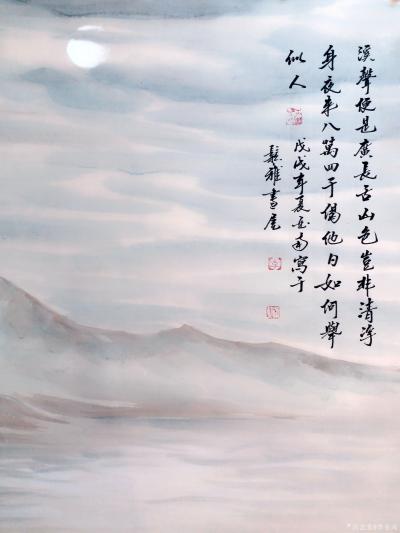 溪聲便是廣長舌山色豈非清淨
身夜來八萬四千偈他日如何舉
似人
戊戌年夏
寫于
雅書屋